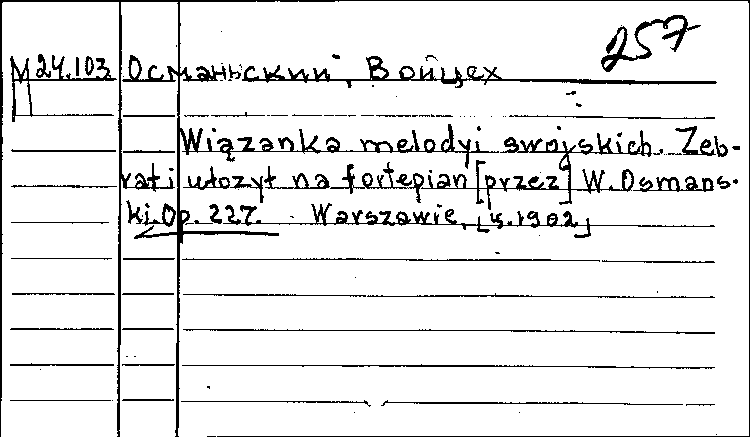 257
М 24.103 Османьский, Войцех
Wiązanka melodyi swojskich. Zeb-
rał i ułożył na fortepian [przez] W. Osmans-
ki. Op. 227. Warszawie, [ч.1902]